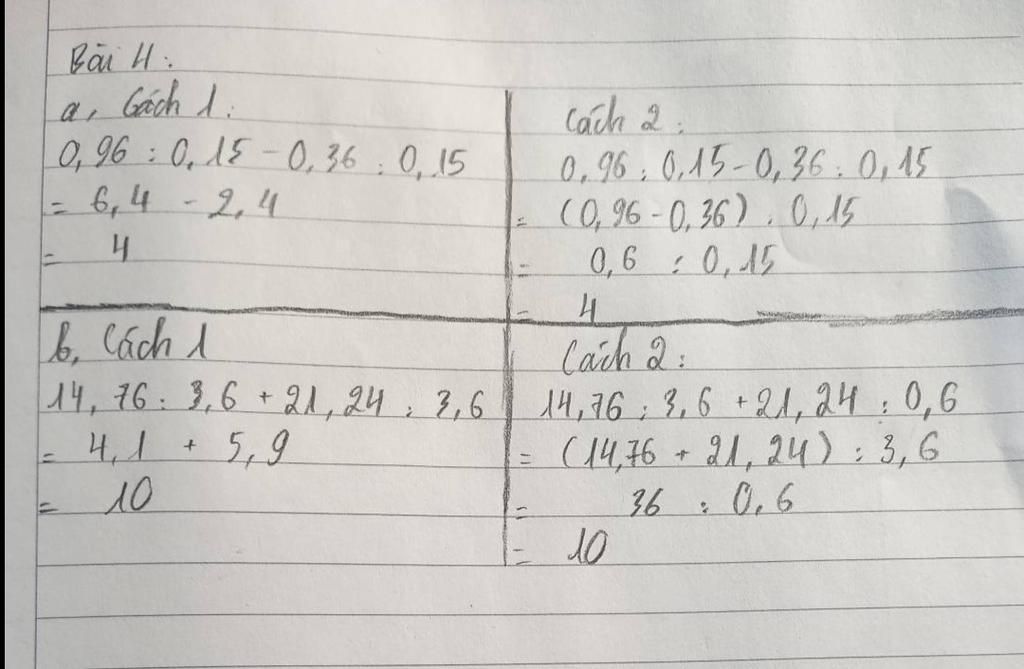 Bài 4:
a, Cách 1:
0,96 : 0,15 - 0,36 : 0,15
= 6,4 - 2,4
= 4
Cách 2:
0,96 : 0,15 - 0,36 : 0,15
= (0,96 - 0,36) : 0,15
= 0,6 : 0,15
= 4
b, Cách 1
14,76 : 3,6 + 21,24 : 3,6
= 4,1 + 5,9
= 10
Cách 2:
14,76 : 3,6 + 21,24 : 0,6
= (14,76 + 21,24) : 3,6
= 36 : 0,6
= 10